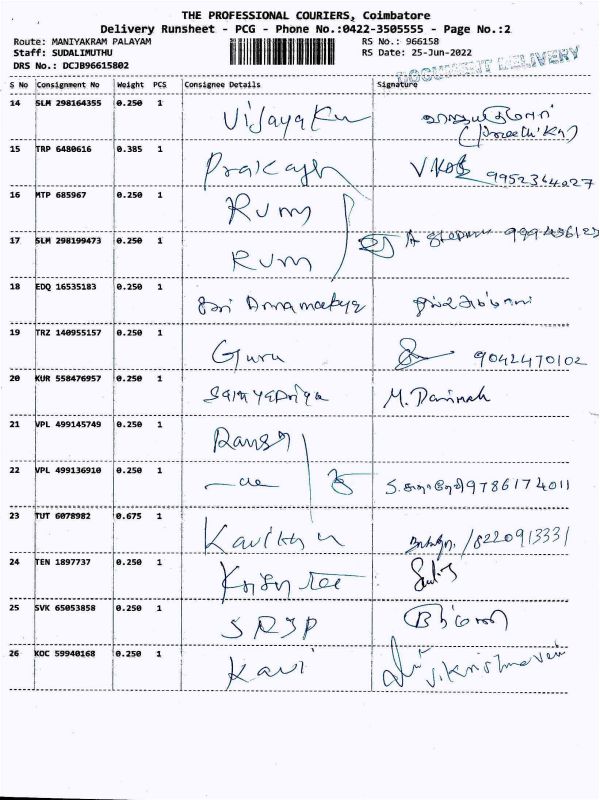 THE PROFESSIONAL COURIERS, Coimbatore
Delivery Runsheet - PCG - Phone No.:0422-3505555 - Page No.:2
Route: MANIYAKRAM PALAYAM RS No.: 966158
Staff: SUDALIMUTHU RS Date: 25-Jun-2022
DRS No.: DCJB96615802 DOCUMENT DELIVERY
S No Consignment No Weight PCS Consignee Details Signature
14 SLM 298164355 0.250 1 Vijayaku
15 TRP 6480616 0.385 1 Prakash 9952364027
16 MTP 685967 0.250 1 Rum
17 SLM 298199473 0.250 1 Rum
18 EDQ 16535183 0.250 1 Sri
19 TRZ 140955157 0.250 1 Guru 9042470102
20 KUR 558476957 0.250 1 Sathyapriya M.
21 VPL 499145749 0.250 1
22 VPL 499136910 0.250 1 9786174011
23 TUT 6078982 0.675 1 8220913331
24 TEN 1897737 0.250 1
25 SVK 65053858 0.250 1
26 KOC 59940168 0.250 1 Kavi V.Krishnaveni